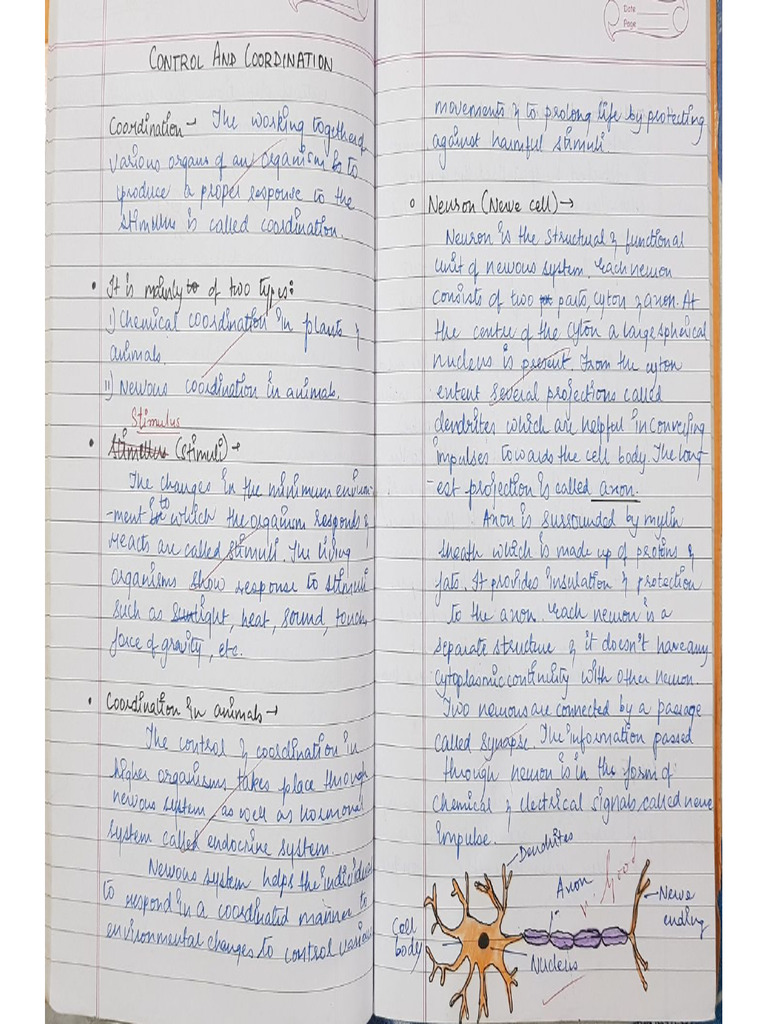 CONTROL AND COORDINATION
Coordination - The working together of
various organs of an organism to to
produce a proper response to the
stimellus is called coordination.
• It is mainly to of two types:
i) Chemical coordination in plants &
animals.
ii) Nervous coordination in animals.
Stimulus
• Stimellus (stimuli) →
The changes in the minimum environ-
-ment in to which the organism responds &
reacts are called stimuli. The living
organisms show response to stimuli
such as sunlight, heat, sound, touch,
force of gravity, etc.
• Coordination in animals →
The control & coordination in
higher organisms takes place through
nervous system, as well as hormonal
system called endocrine system.
Nervous system helps the individual
to respond in a coordinated manner to
environmental changes to control various
Date
Page
movements & to prolong life by protecting
against harmful stimuli.
o Neuron (Nerve cell) →
Neuron is the structural & functional
unit of nervous system. Each neuron
consists of two parts, cyton & axon. At
the centre of the cyton a large spherical
nucleus is present. From the cyton
extent several projections called
dendrites which are helpful in converying
impulses towards the cell body. The long
-est projection is called axon.
Axon is surrounded by mylin
sheath which is made up of protiens &
fats. It provides insulation & protection
to the axon. Each neuron is a
separate structure & it doesn't have any
cytoplasmic continuity with other neuron.
Two neurons are connected by a passage
called synapse. The information passed
through neuron is in the form of
chemical & electrical signals called nerve
impulse.
Dendrites
Axon
v. Good
Nerve
ending
Cell
body
Nucleus